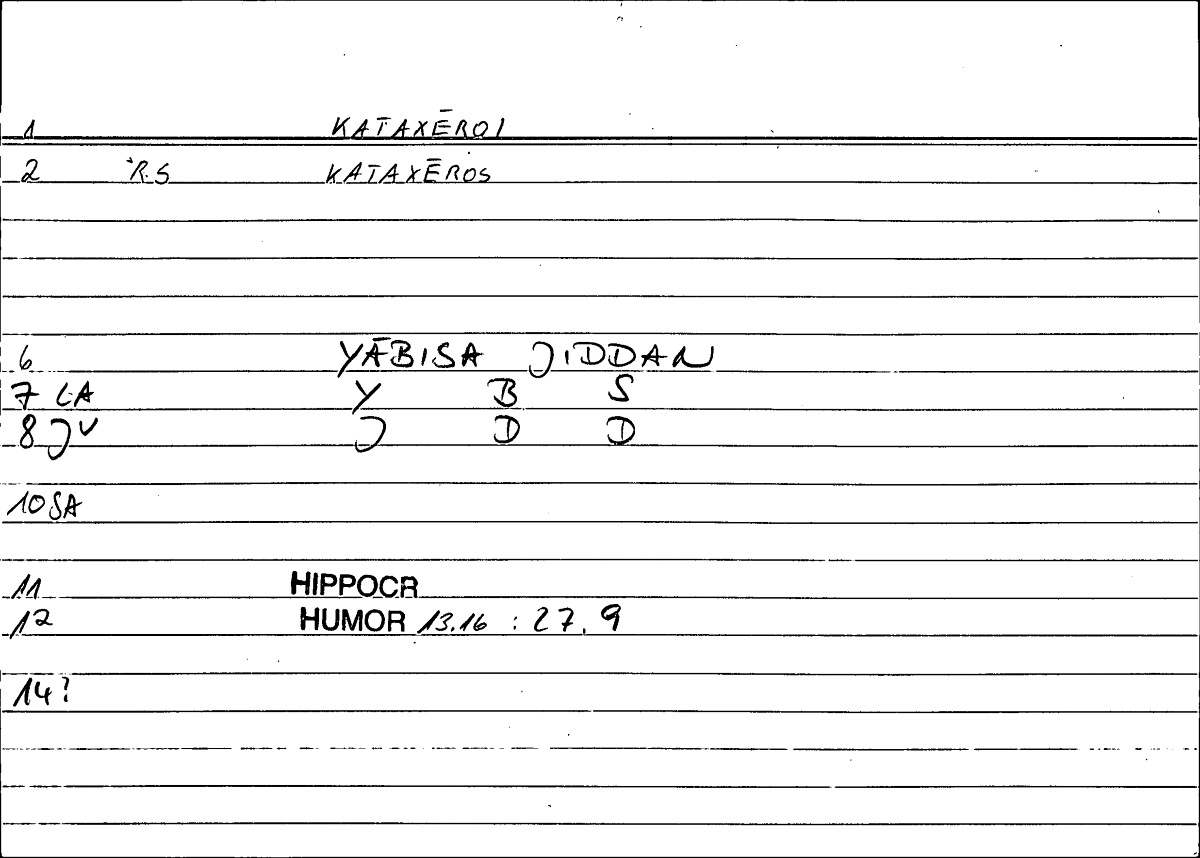 1 KATAXĒROI
2 *R.S KATAXĒROS
6 YĀBISA JIDDAN
7 LA Y B S
8 JV J D D
10 SA
11 HIPPOCR
12 HUMOR 13.16 : 27.9
14?